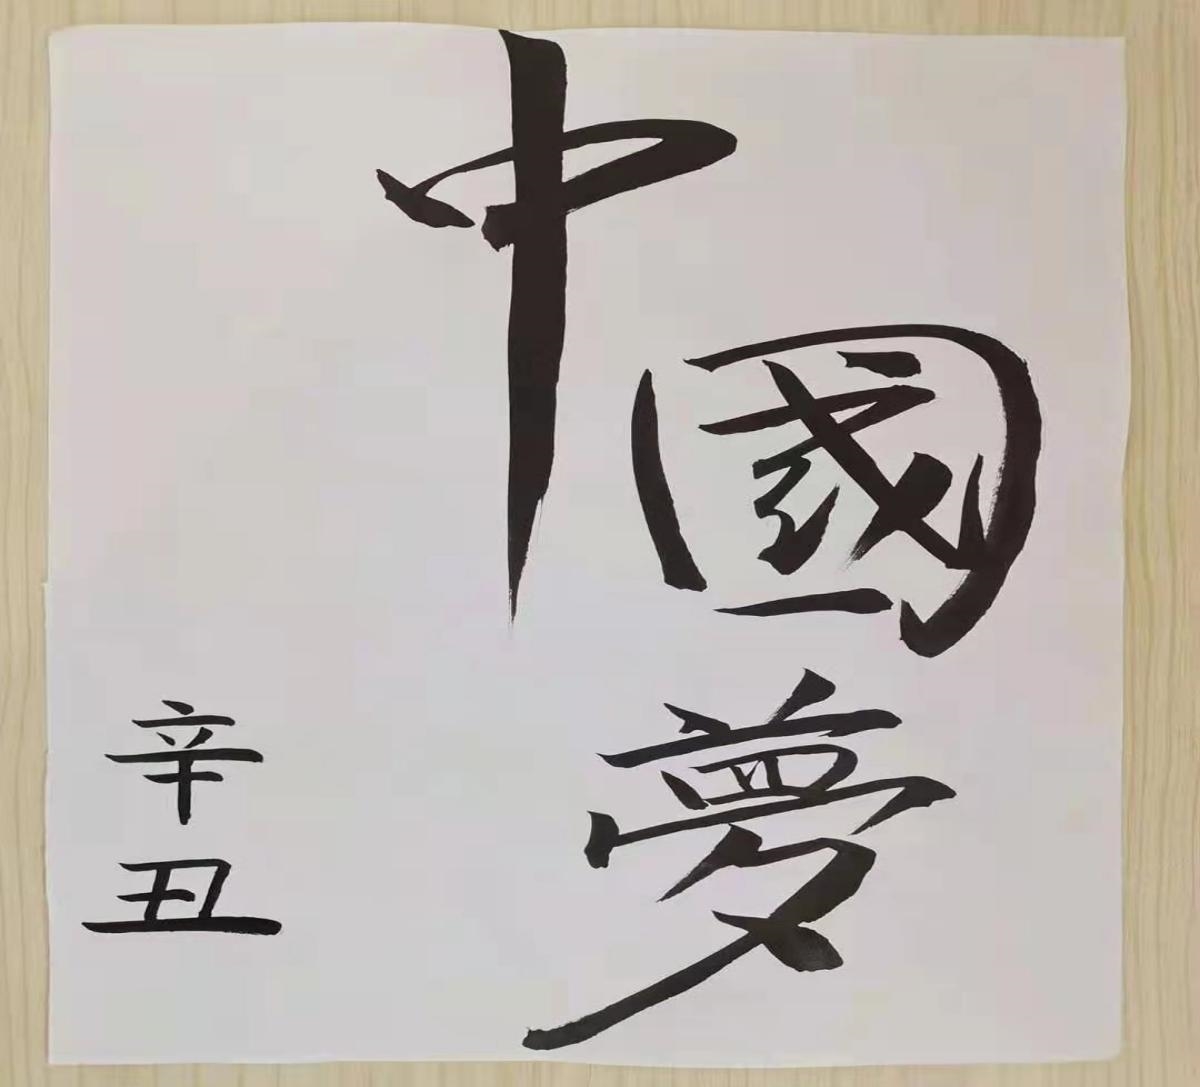 中國夢
辛丑